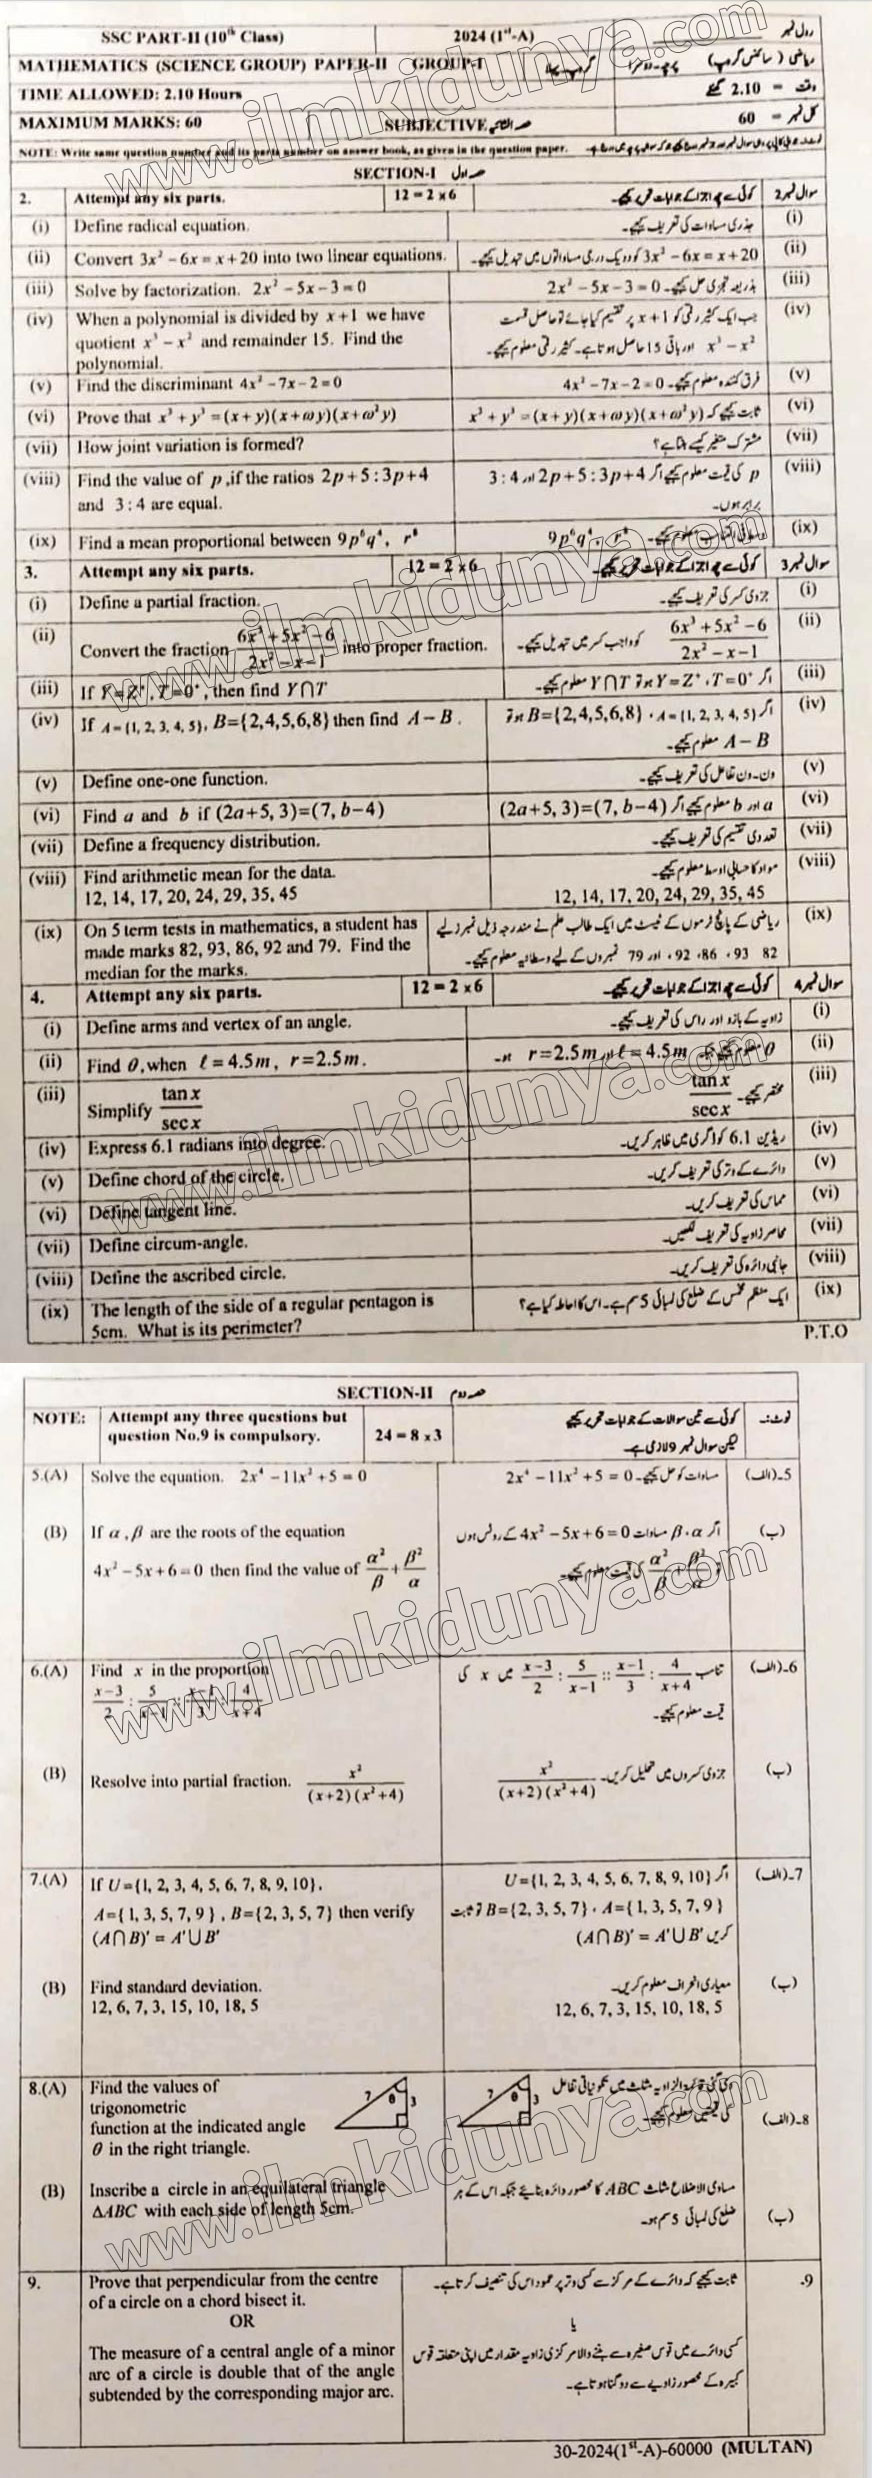 SSC PART-II (10th Class) 2024 (1st-A) رول نمبر
MATHEMATICS (SCIENCE GROUP) PAPER-II GROUP-I گروپ پہلا ریاضی (سائنس گروپ) پرچہ دوسرا
TIME ALLOWED: 2.10 Hours وقت = 2.10 گھنٹے
MAXIMUM MARKS: 60 SUBJECTIVE حصہ انشائیہ کل نمبر = 60
NOTE: Write same question number and its parts number on answer book, as given in the question paper.
SECTION-I حصہ اول
2. Attempt any six parts. 12 = 2 x 6 کوئی سے چھ اجزا کے جوابات تحریر کیجیے۔ سوال نمبر 2
(i) Define radical equation. جذری مساوات کی تعریف کیجیے۔ (i)
(ii) Convert 3x² − 6x = x + 20 into two linear equations. 3x² − 6x = x + 20 کو دو یک درجی مساواتوں میں تبدیل کیجیے۔ (ii)
(iii) Solve by factorization. 2x² − 5x − 3 = 0 بذریعہ تجزی حل کیجیے۔ 2x² − 5x − 3 = 0 (iii)
(iv) When a polynomial is divided by x + 1 we have جب ایک کثیر رقمی کو x + 1 پر تقسیم کیا جائے تو حاصل قسمت (iv)
quotient x³ − x² and remainder 15. Find the x³ − x² اور باقی 15 حاصل ہوتا ہے۔ کثیر رقمی معلوم کیجیے۔
polynomial.
(v) Find the discriminant 4x² − 7x − 2 = 0 فرق کنندہ معلوم کیجیے۔ 4x² − 7x − 2 = 0 (v)
(vi) Prove that x³ + y³ = (x + y)(x + ωy)(x + ω²y) ثابت کیجیے کہ x³ + y³ = (x + y)(x + ωy)(x + ω²y) (vi)
(vii) How joint variation is formed? مشترک متغیر کیسے بنتا ہے؟ (vii)
(viii) Find the value of p, if the ratios 2p + 5 : 3p + 4 p کی قیمت معلوم کیجیے اگر 2p + 5 : 3p + 4 اور 3 : 4 (viii)
and 3 : 4 are equal. برابر ہوں۔
(ix) Find a mean proportional between 9p⁶q⁴, r⁸ 9p⁶q⁴, r⁸ معلوم کیجیے۔ (ix)
3. Attempt any six parts. 12 = 2 x 6 کوئی سے چھ اجزا کے جوابات تحریر کیجیے۔ سوال نمبر 3
(i) Define a partial fraction. جزوی کسر کی تعریف کیجیے۔ (i)
(ii) Convert the fraction (6x³ + 5x² − 6)/(2x² − x − 1) into proper fraction. (6x³ + 5x² − 6)/(2x² − x − 1) کو واجب کسر میں تبدیل کیجیے۔ (ii)
(iii) If Y = Z⁺, T = 0⁺, then find Y ∩ T اگر Y = Z⁺، T = 0⁺ ہو تو Y ∩ T معلوم کیجیے۔ (iii)
(iv) If A = {1, 2, 3, 4, 5}, B = {2,4,5,6,8} then find A − B. اگر A = {1, 2, 3, 4, 5}، B = {2,4,5,6,8} ہو تو (iv)
A − B معلوم کیجیے۔
(v) Define one-one function. ون-ون تفاعل کی تعریف کیجیے۔ (v)
(vi) Find a and b if (2a+5, 3)=(7, b−4) a اور b معلوم کیجیے اگر (2a+5, 3)=(7, b−4) (vi)
(vii) Define a frequency distribution. تعددی تقسیم کی تعریف کیجیے۔ (vii)
(viii) Find arithmetic mean for the data. مواد کا حسابی اوسط معلوم کیجیے۔ (viii)
12, 14, 17, 20, 24, 29, 35, 45 12, 14, 17, 20, 24, 29, 35, 45
(ix) On 5 term tests in mathematics, a student has ریاضی کے پانچ ٹرموں کے ٹیسٹ میں ایک طالب علم نے مندرجہ ذیل نمبر لیے (ix)
made marks 82, 93, 86, 92 and 79. Find the 82 ، 93 ، 86 ، 92 اور 79 نمبروں کے لیے وسطانیہ معلوم کیجیے۔
median for the marks.
4. Attempt any six parts. 12 = 2 x 6 کوئی سے چھ اجزا کے جوابات تحریر کیجیے۔ سوال نمبر 4
(i) Define arms and vertex of an angle. زاویہ کے بازو اور راس کی تعریف کیجیے۔ (i)
(ii) Find θ, when ℓ = 4.5m, r = 2.5m. θ معلوم کیجیے جبکہ ℓ = 4.5m اور r = 2.5m ہو۔ (ii)
(iii) Simplify tan x / sec x مختصر کیجیے۔ tan x / sec x (iii)
(iv) Express 6.1 radians into degree. ریڈین 6.1 کو ڈگری میں ظاہر کریں۔ (iv)
(v) Define chord of the circle. دائرے کے وتر کی تعریف کریں۔ (v)
(vi) Define tangent line. مماس کی تعریف کریں۔ (vi)
(vii) Define circum-angle. محاصر زاویہ کی تعریف لکھیں۔ (vii)
(viii) Define the ascribed circle. جانبی دائرہ کی تعریف کریں۔ (viii)
(ix) The length of the side of a regular pentagon is ایک منظم مخمس کے ضلع کی لمبائی 5 سم ہے۔ اس کا احاطہ کیا ہے؟ (ix)
5cm. What is its perimeter?
P.T.O
SECTION-II حصہ دوم
NOTE: Attempt any three questions but 24 = 8 x 3 کوئی سے تین سوالات کے جوابات تحریر کیجیے نوٹ:۔
question No.9 is compulsory. لیکن سوال نمبر 9 لازمی ہے۔
5.(A) Solve the equation. 2x⁴ − 11x² + 5 = 0 مساوات کو حل کیجیے۔ 2x⁴ − 11x² + 5 = 0 5۔(الف)
(B) If α, β are the roots of the equation اگر α، β مساوات 4x² − 5x + 6 = 0 کے روٹس ہوں (ب)
4x² − 5x + 6 = 0 then find the value of α²/β + β²/α تو α²/β + β²/α کی قیمت معلوم کیجیے۔
6.(A) Find x in the proportion تناسب (x−3)/2 : 5/(x−1) :: (x−1)/3 : 4/(x+4) میں x کی 6۔(الف)
(x−3)/2 : 5/(x−1) :: (x−1)/3 : 4/(x+4) قیمت معلوم کیجیے۔
(B) Resolve into partial fraction. x²/((x+2)(x²+4)) جزوی کسروں میں تحلیل کریں۔ x²/((x+2)(x²+4)) (ب)
7.(A) If U = {1, 2, 3, 4, 5, 6, 7, 8, 9, 10}, اگر U = {1, 2, 3, 4, 5, 6, 7, 8, 9, 10} 7۔(الف)
A = {1, 3, 5, 7, 9}, B = {2, 3, 5, 7} then verify A = {1, 3, 5, 7, 9}، B = {2, 3, 5, 7} تو ثابت
(A∩B)′ = A′∪B′ کریں (A∩B)′ = A′∪B′
(B) Find standard deviation. معیاری انحراف معلوم کریں۔ (ب)
12, 6, 7, 3, 15, 10, 18, 5 12, 6, 7, 3, 15, 10, 18, 5
8.(A) Find the values of دی گئی قائمۃ الزاویہ مثلث میں تکونیاتی تفاعل
trigonometric 7 θ 3 7 θ 3 کی قیمتیں معلوم کیجیے۔ 8۔(الف)
function at the indicated angle
θ in the right triangle.
(B) Inscribe a circle in an equilateral triangle مساوی الاضلاع مثلث ABC کا محصور دائرہ بنائیے جبکہ اس کے ہر
ΔABC with each side of length 5cm. ضلع کی لمبائی 5 سم ہو۔ (ب)
9. Prove that perpendicular from the centre ثابت کیجیے کہ دائرے کے مرکز سے کسی وتر پر عمود اس کی تنصیف کرتا ہے۔ 9۔
of a circle on a chord bisect it.
OR یا
The measure of a central angle of a minor کسی دائرے میں قوس صغیرہ سے بننے والا مرکزی زاویہ مقدار میں اپنی متعلقہ قوس
arc of a circle is double that of the angle کبیرہ کے محصور زاویے سے دوگنا ہوتا ہے۔
subtended by the corresponding major arc.
30-2024(1st-A)-60000 (MULTAN)
www.ilmkidunya.com
www.ilmkidunya.com
www.ilmkidunya.com
www.ilmkidunya.com
www.ilmkidunya.com